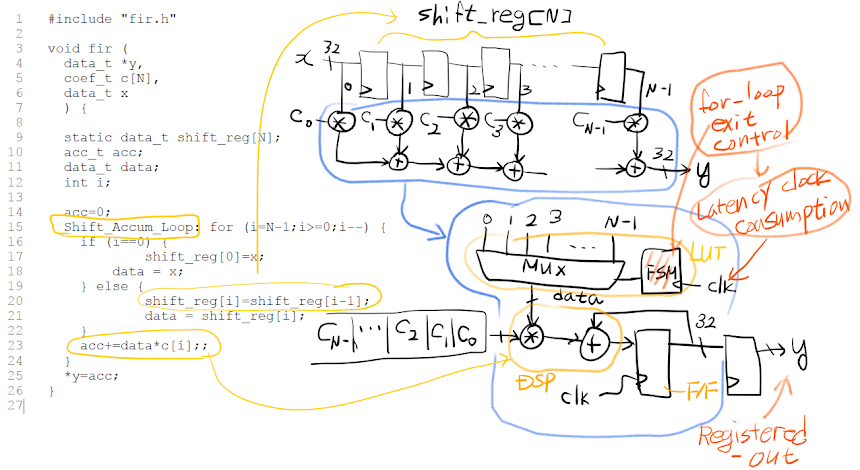 1 #include "fir.h"
2
3 void fir (
4 data_t *y,
5 coef_t c[N],
6 data_t x
7 ) {
8
9 static data_t shift_reg[N];
10 acc_t acc;
11 data_t data;
12 int i;
13
14 acc=0;
15 Shift_Accum_Loop: for (i=N-1;i>=0;i--) {
16 if (i==0) {
17 shift_reg[0]=x;
18 data = x;
19 } else {
20 shift_reg[i]=shift_reg[i-1];
21 data = shift_reg[i];
22 }
23 acc+=data*c[i];;
24 }
25 *y=acc;
26 }
27
shift_reg[N]
x 32
0 1 2 3 N-1
C0 C1 C2 C3 CN-1
* * * * *
+ + + + 32 y
for-loop
exit
control
Latency clock
consumption
0 1 2 3 ... N-1
LUT
MUX FSM clk
data
CN-1 ... C2 C1 C0
* + 32 y
DSP clk F/F
Registered
-out